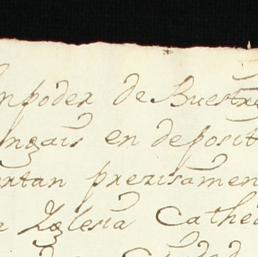 enpoder de Buestra
engais en deposit
ertan prezisamen
e Yglesia Cathed